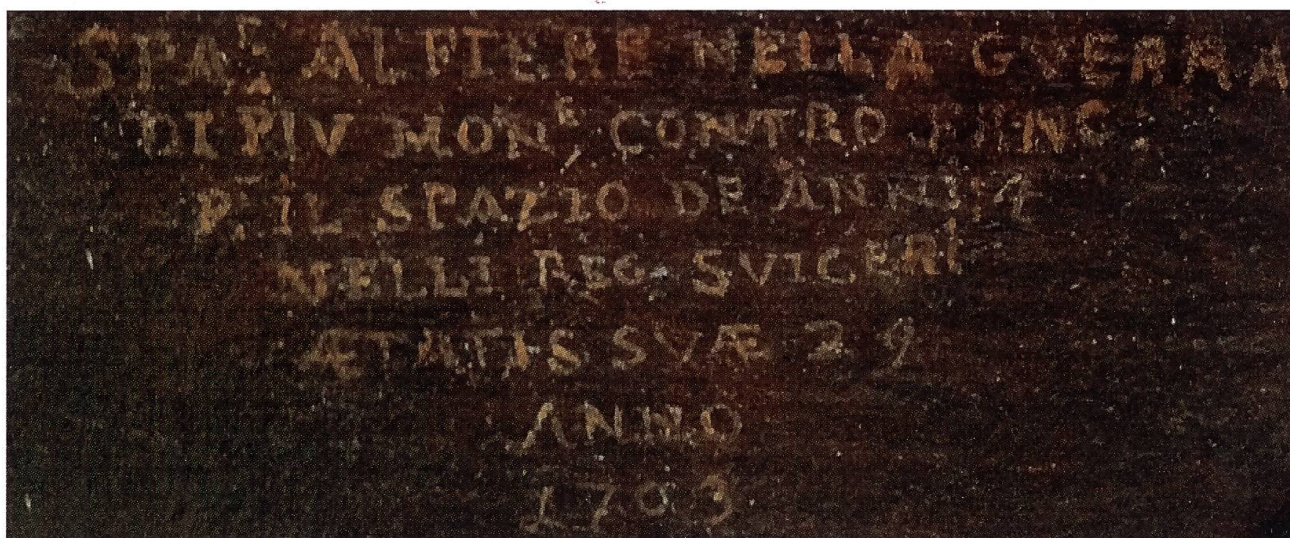 SPA.ᶜ ALFIERE NELLA GVERRA
DI PIV MON.ᶜ CONTRO
P. IL SPAZIO DE ANNI
NELLI REG. SVICERI
ÆTATIS SVÆ 29
ANNO
1703